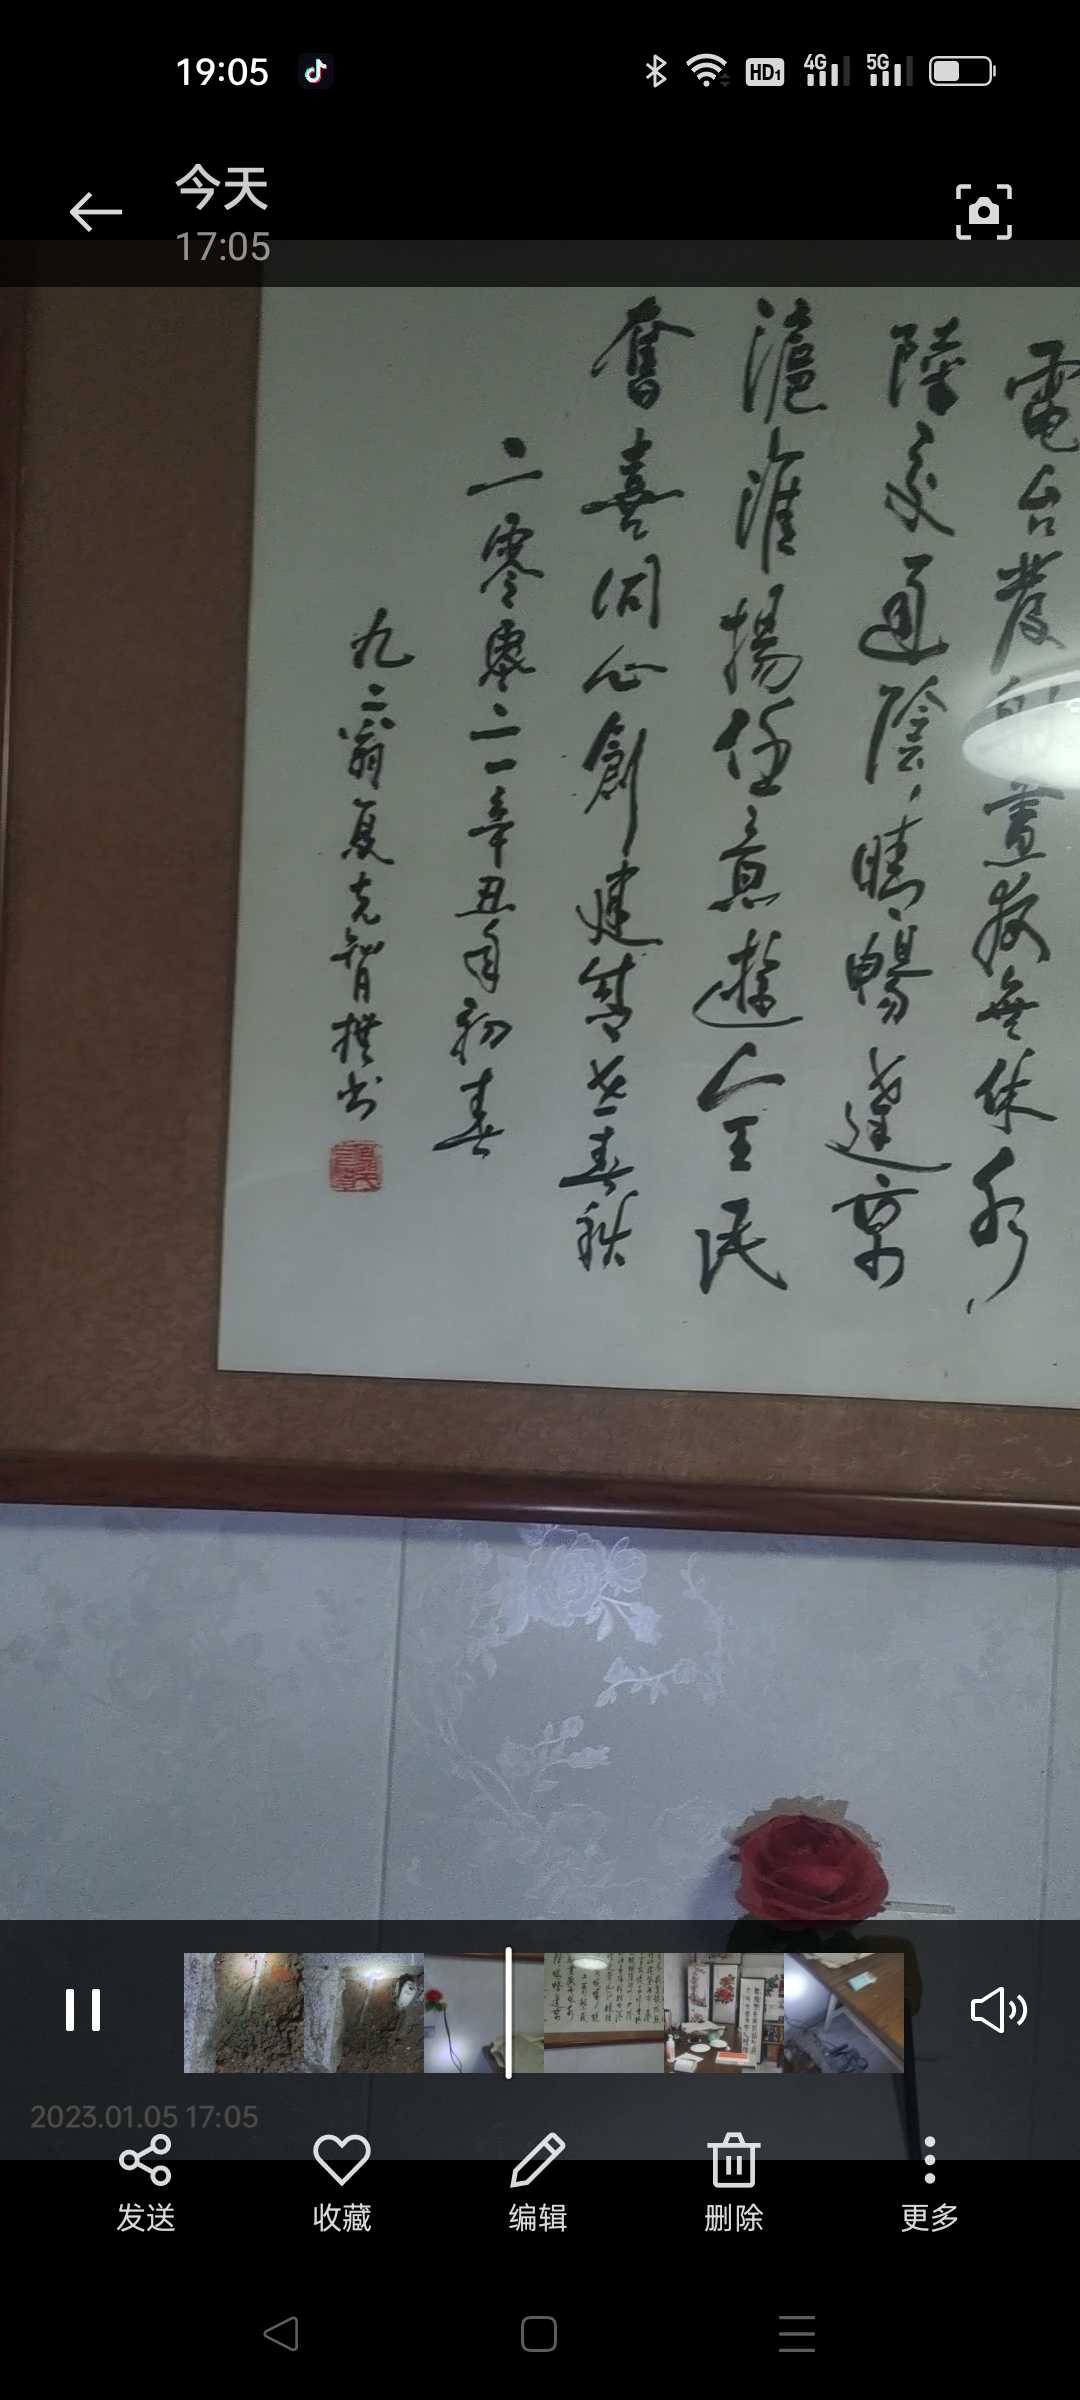 19:05
HD1 4G 5G
今天
17:05
電台農 畫夜無休永
陸交通陰晴暢達京
滬淮揚任意遊全民
奮喜同心創建
春秋
二零零二一辛丑年初春
九二翁夏克智撰书
2023.01.05 17:05
发送
收藏
编辑
删除
更多